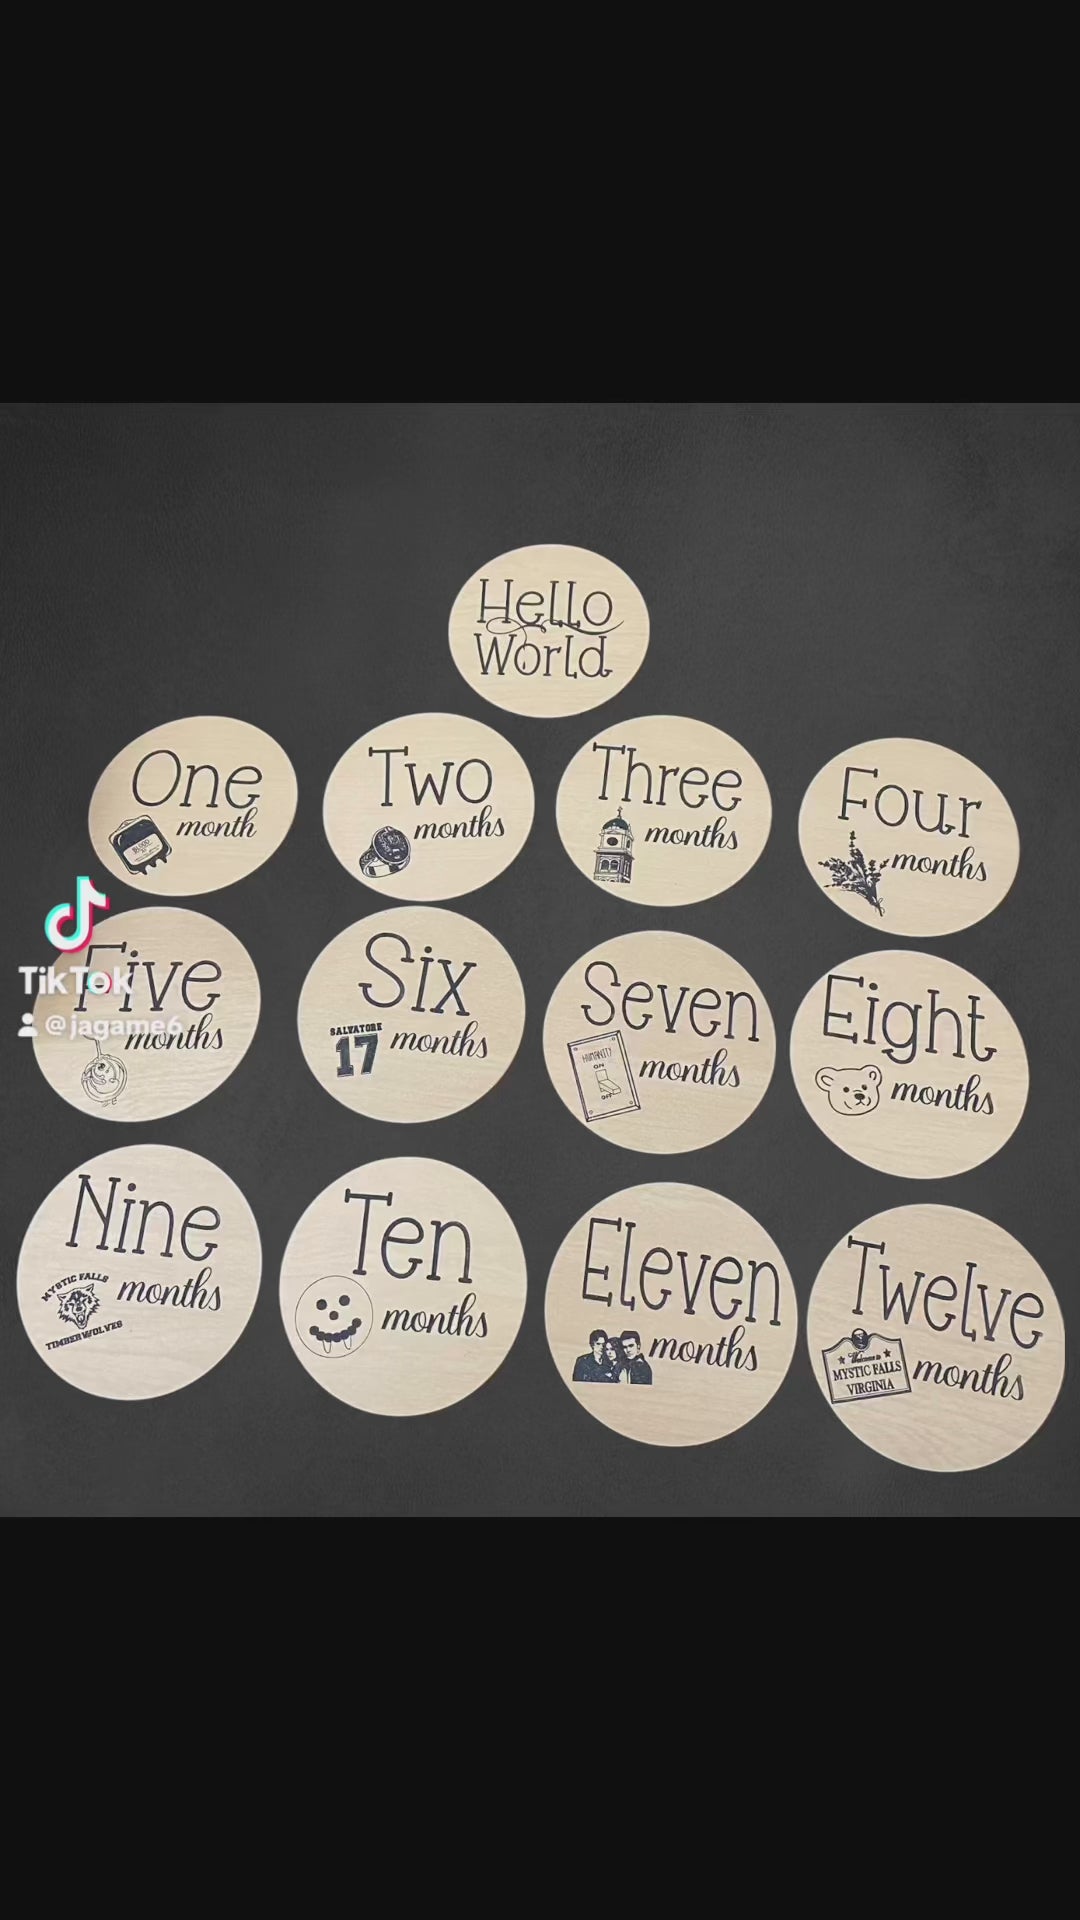 Hello
World
One
month
BLOOD
Two
months
Three
months
Four
months
TikTok
@jagame6
Five
months
Six
SALVATORE
17
months
Seven
HUMANITY
ON
OFF
months
Eight
months
Nine
MYSTIC FALLS
TIMBERWOLVES
months
Ten
months
Eleven
months
Twelve
Welcome to
MYSTIC FALLS
VIRGINIA
months